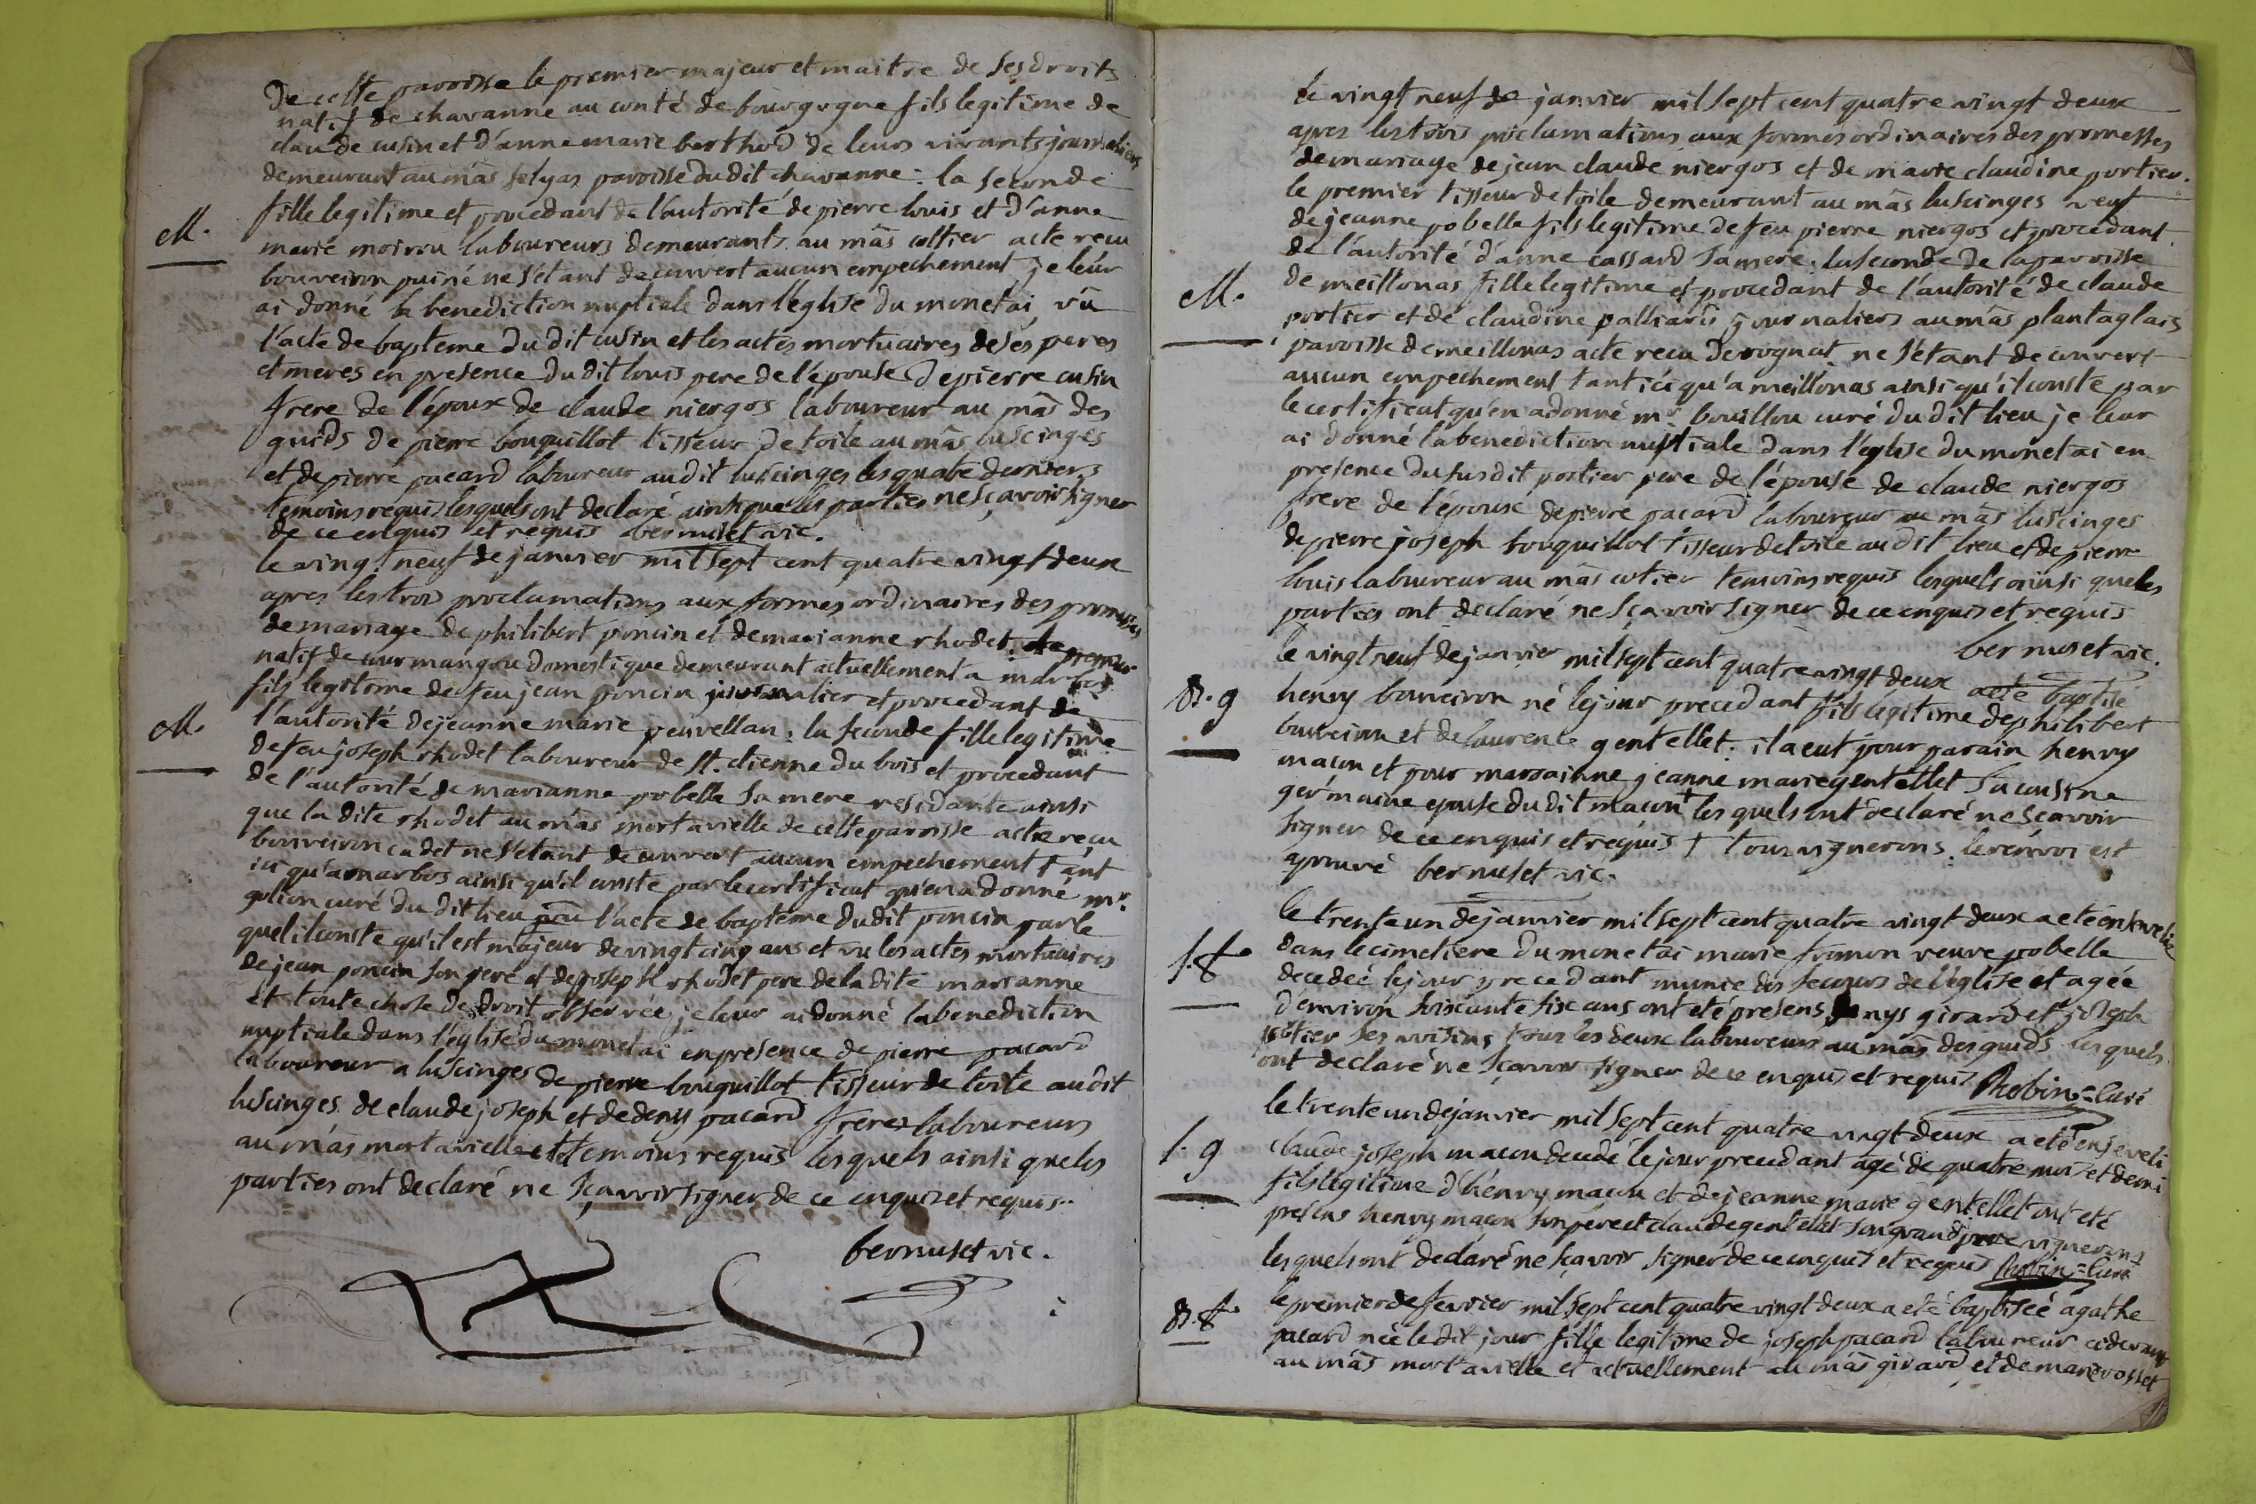 De cette paroisse le premier majeur et maitre de ses droits
natif de chavanne au conté de bourgogne fils legitime de
claude cusin et d'anne marie berthod de leurs vivants journaliers
demeurant au mâs paroisse du dit chavanne : la seconde
fille legitime et procedant de l'autorité de pierre louis et d'anne
M.
marie moirou laboureurs demeurants au mâs cottier acte recu
bouveiron puiné ne s'étant decouvert aucun empechement je leur
ai donné la benediction nuptiale dans l'eglise du monetai vû
l'acte de bapteme du dit cusin et les actes mortuaires de ses peres
et meres en presence du dit louis pere de l'épouse de pierre cusin
frere de l'époux de claude niergos laboureur au mâs des
guids de pierre bouquillot tisseur de toile au mâs luscinges
et de pierre pacard laboureur au dit luscinges les quatre derniers
temoins requis lesquels ont declaré ainsi que les parties ne sçavoir signer
de ce enquis et requis bernuset vic.
le vingt neuf de janvier mil sept cent quatre vingt deux
apres les trois proclamations aux formes ordinaires des promesses
de mariage de philibert poncin et de marianne rhodet le premier
natif de courmangou domestique demeurant actuellement a marbos
fils legitime de feu jean poncin journalier et procedant de
M.
l'autorité de jeanne marie peuvellan : la seconde fille legitime
de feu joseph rhodet laboureur de st. etienne du bois et procedant
de l'autorité de marianne pobelle sa mere residante ainsi
que la dite rhodet au mâs mortavielle de cette paroisse acte reçu
bouveiron cadet ne s'étant decouvert aucun empechement tant
ici qu'a marbos ainsi qu'il conste par le certificat qu'en a donné mr.
gulion curé du dit lieu l'acte de bapteme du dit poncin par le
quel il conste qu'il est majeur de vingt cinq ans et vu les actes mortuaires
de jean poncin son pere et de joseph rhodet pere de la dite marianne
et toute chose de droit observée je leur ai donné la benediction
nuptiale dans l'eglise du monetai en presence de pierre pacard
laboureur a luscinges de pierre bouquillot tisseur de toile au dit
luscinges de claude joseph et de denys pacard freres laboureurs
au mâs mortavielle temoins requis lesquels ainsi que les
parties ont declaré ne sçavoir signer de ce enquis et requis.
bernuset vic.
le vingt neuf de janvier mil sept cent quatre vingt deux
apres les trois proclamations aux formes ordinaires des promesses
de mariage de jean claude niergos et de marie claudine portier.
le premier tisseur de toile demeurant au mâs luscinges veuf
de jeanne pobelle fils legitime de feu pierre niergos et procedant
de l'autorité d'anne cassard sa mere ; la seconde de la paroisse
M.
de meillonas fille legitime et procedant de l'autorité de claude
portier et de claudine palliard journaliers au mâs plantaglais
paroisse de meillonas acte recu derognat ne s'étant decouvert
aucun empechement tant ici qu'a meillonas ainsi qu'il conste par
le certificat qu'en a donné mr. bouillou curé du dit lieu je leur
ai donné la benediction nuptiale dans l'église du monetai en
presence du susdit portier pere de l'épouse de claude niergos
frere de l'époux de pierre pacard laboureur au mâs luscinges
de pierre joseph bouquillot tisseur de toile au dit lieu et de pierre
louis laboureur au mâs cotier temoins requis lesquels ainsi que les
parties ont declaré ne sçavoir signer de ce enquis et requis
bernuset vic.
le vingt neuf de janvier mil sept cent quatre vingt deux a eté baptisé
B. g
henry bouveiron né le jour precedant fils légitime de philibert
bouveiron et de laurence gentellet : il a eut pour parain henry
macon et pour marainne jeanne marie gentellet sa cousine
germaine epouse du dit macon + les quels ont declaré ne sçavoir
signer de ce enquis et requis + tous vignerons. le renvoi est
aprouvé bernuset vic.
le trente un de janvier mil sept cent quatre vingt deux a eté ensevelie
S. f.
dans le cimetiere du monetai marie framon veuve pobelle
decedeé le jour precedant munie des secours de l'église et agée
d'environ soixante six ans ont eté présens denys girard et joseph
cotier ses voisins tous les deux laboureurs au mâs des guids les quels
ont declaré ne sçavoir signer de ce enquis et requis Robin = Curé
le trente un de janvier mil sept cent quatre vingt deux a eté enseveli
S. g
claude joseph macon decedé le jour precedant agé de quatre mois et demi
fils legitime d'hénry macon et de jeanne marie gentellet ont eté
présens henry maçon son pere et claude gentellet son grand pere vignerons
lesquels ont declaré ne sçavoir signer de ce enquis et requis Robin = Curé
B. f.
le premier de fevrier mil sept cent quatre vingt deux a eté baptiseé agathe
pacard née le dit jour fille legitime de joseph pacard laboureur cidevant
au mâs mortavielle et actuellement au mâs girard et de marie rosset